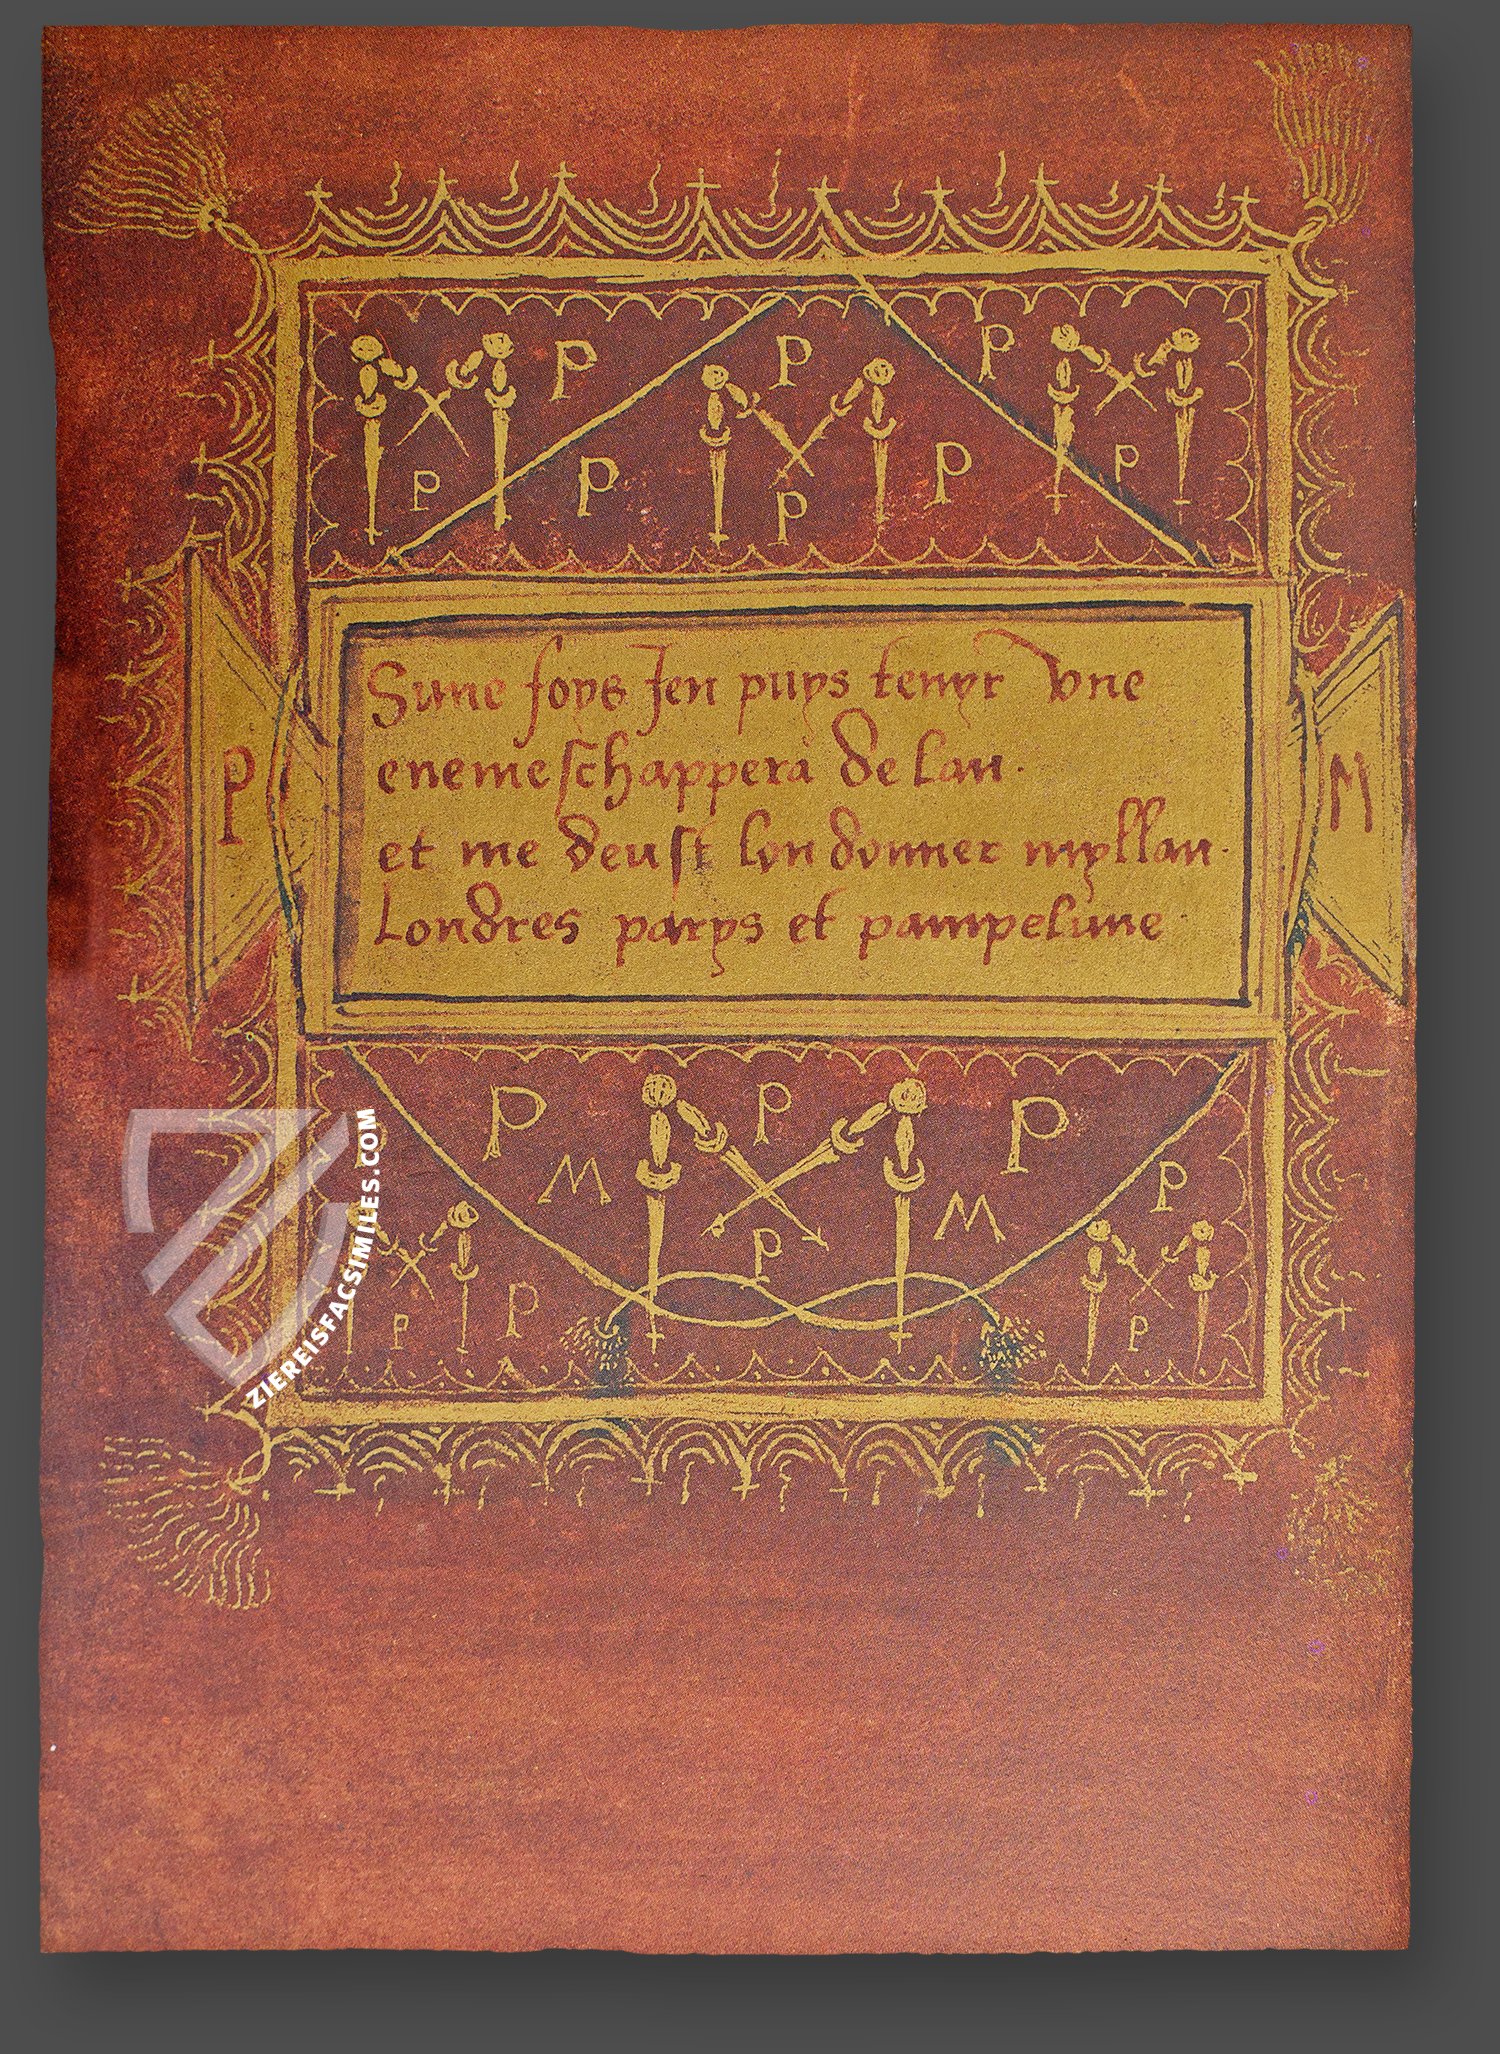 P P P
P P P P
P
Sune foys Jen puys tenyr vne
enemeschappera de lau.
P M
et me deust lon donner myllan.
Londres parys et pampelune
P P P
M M P
P
P P P
ZIEREISFACSIMILES.COM